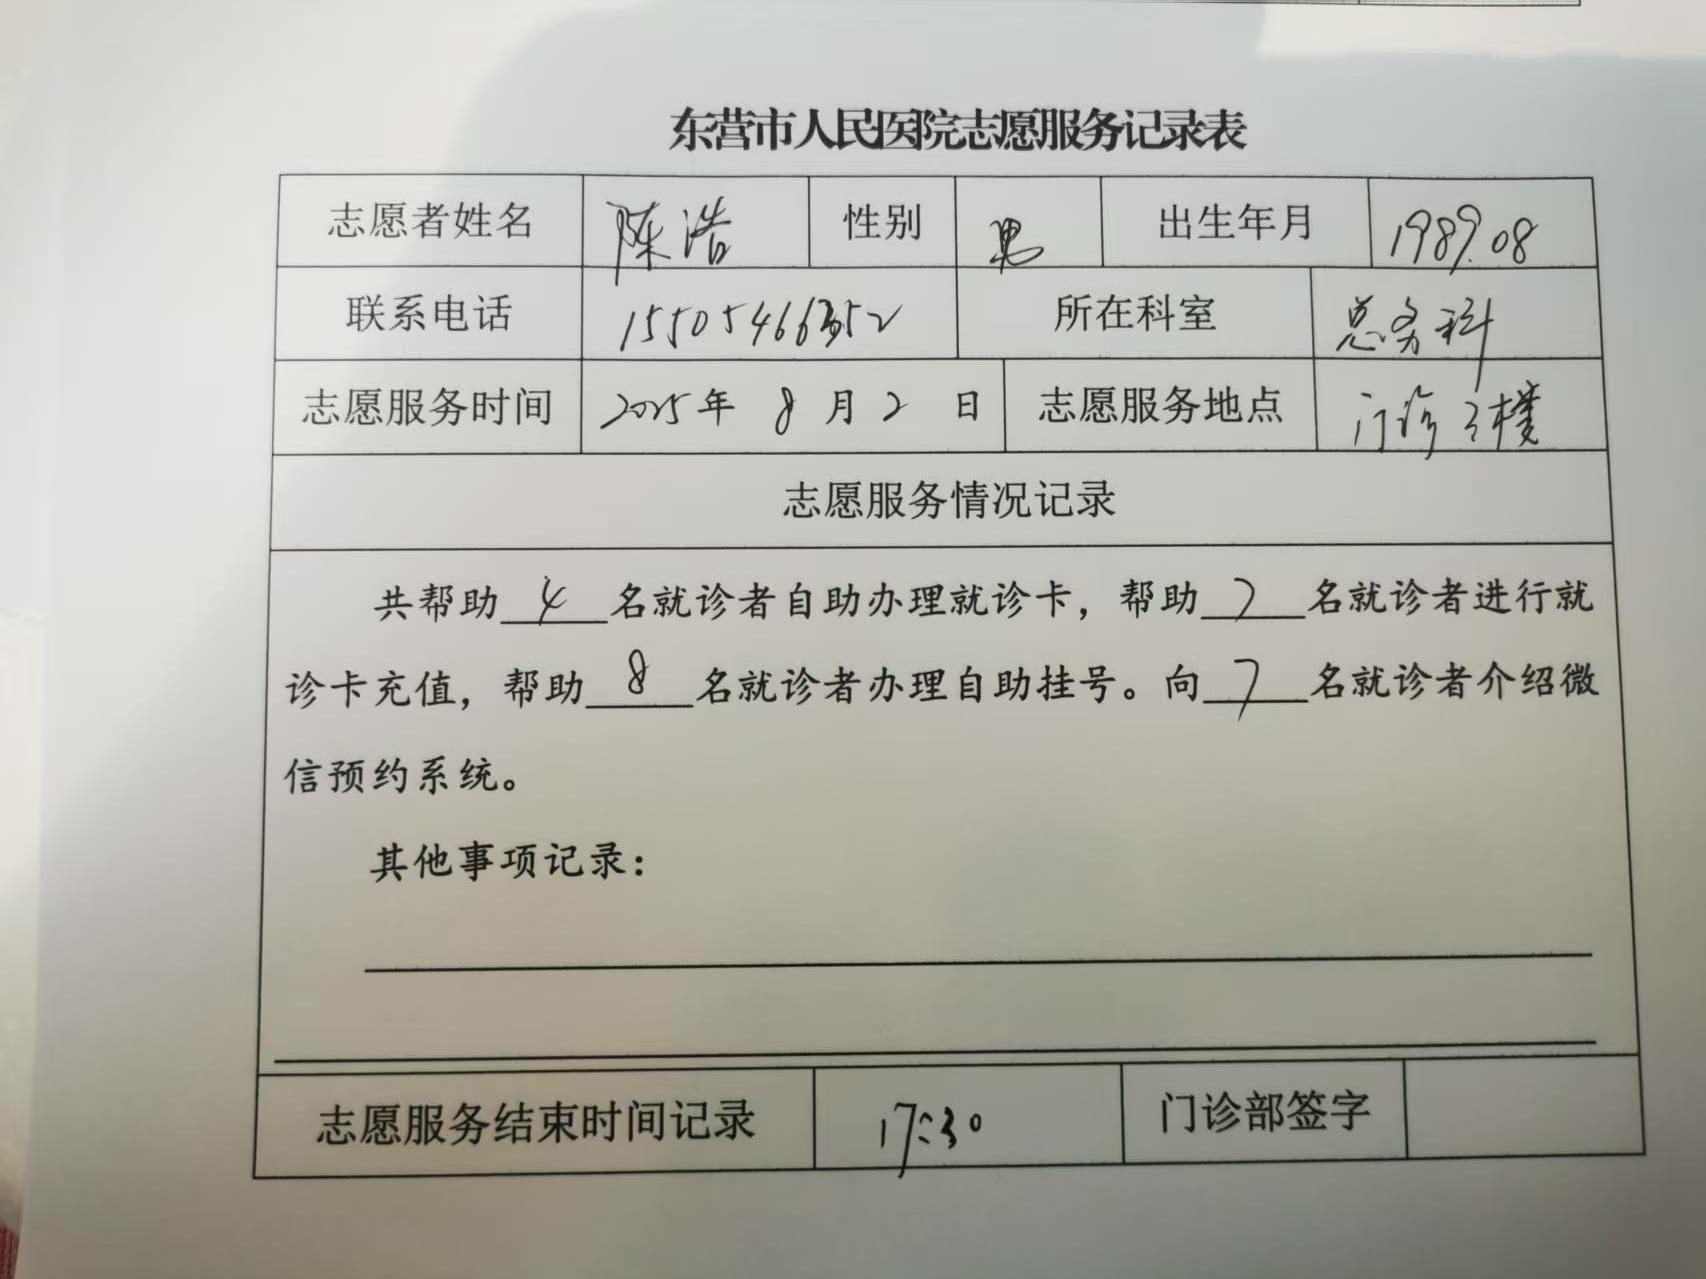 东营市人民医院志愿服务记录表
志愿者姓名 陈浩 性别 男 出生年月 1989.08
联系电话 15505466352 所在科室 总务科
志愿服务时间 2025年 8 月 2 日 志愿服务地点 门诊 楼
志愿服务情况记录
共帮助 4 名就诊者自助办理就诊卡，帮助 7 名就诊者进行就
诊卡充值，帮助 8 名就诊者办理自助挂号。向 7 名就诊者介绍微
信预约系统。
其他事项记录：
志愿服务结束时间记录 17:30 门诊部签字